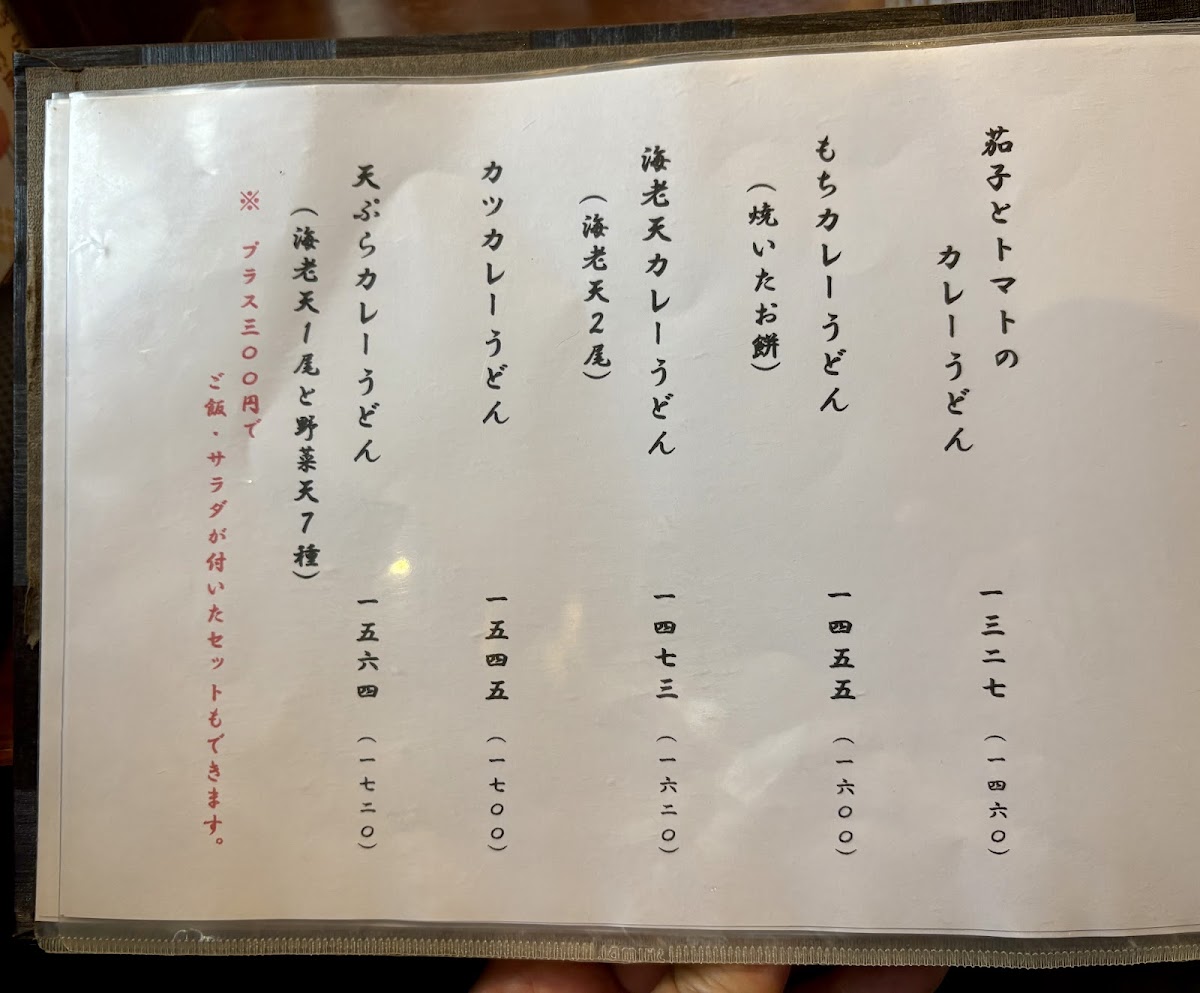 茄子とトマトの
カレーうどん
一三二七
(一四六〇)
もちカレーうどん
一四五五
(一六〇〇)
(焼いたお餅)
海老天カレーうどん
一四七三
(一六二〇)
(海老天2尾)
カツカレーうどん
一五四五
(一七〇〇)
天ぷらカレーうどん
一五六四
(一七二〇)
(海老天1尾と野菜天7種)
※ プラス三〇〇円で
ご飯・サラダが付いたセットもできます。